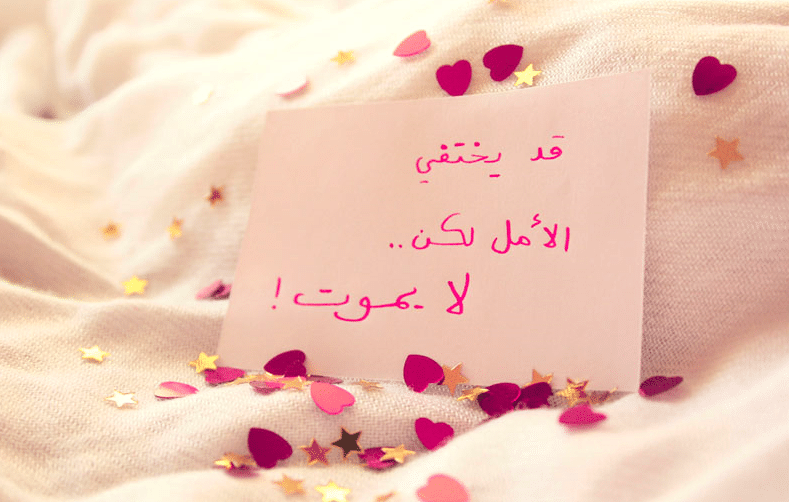 قد يختفي
الأمل لكن..
لا يموت!